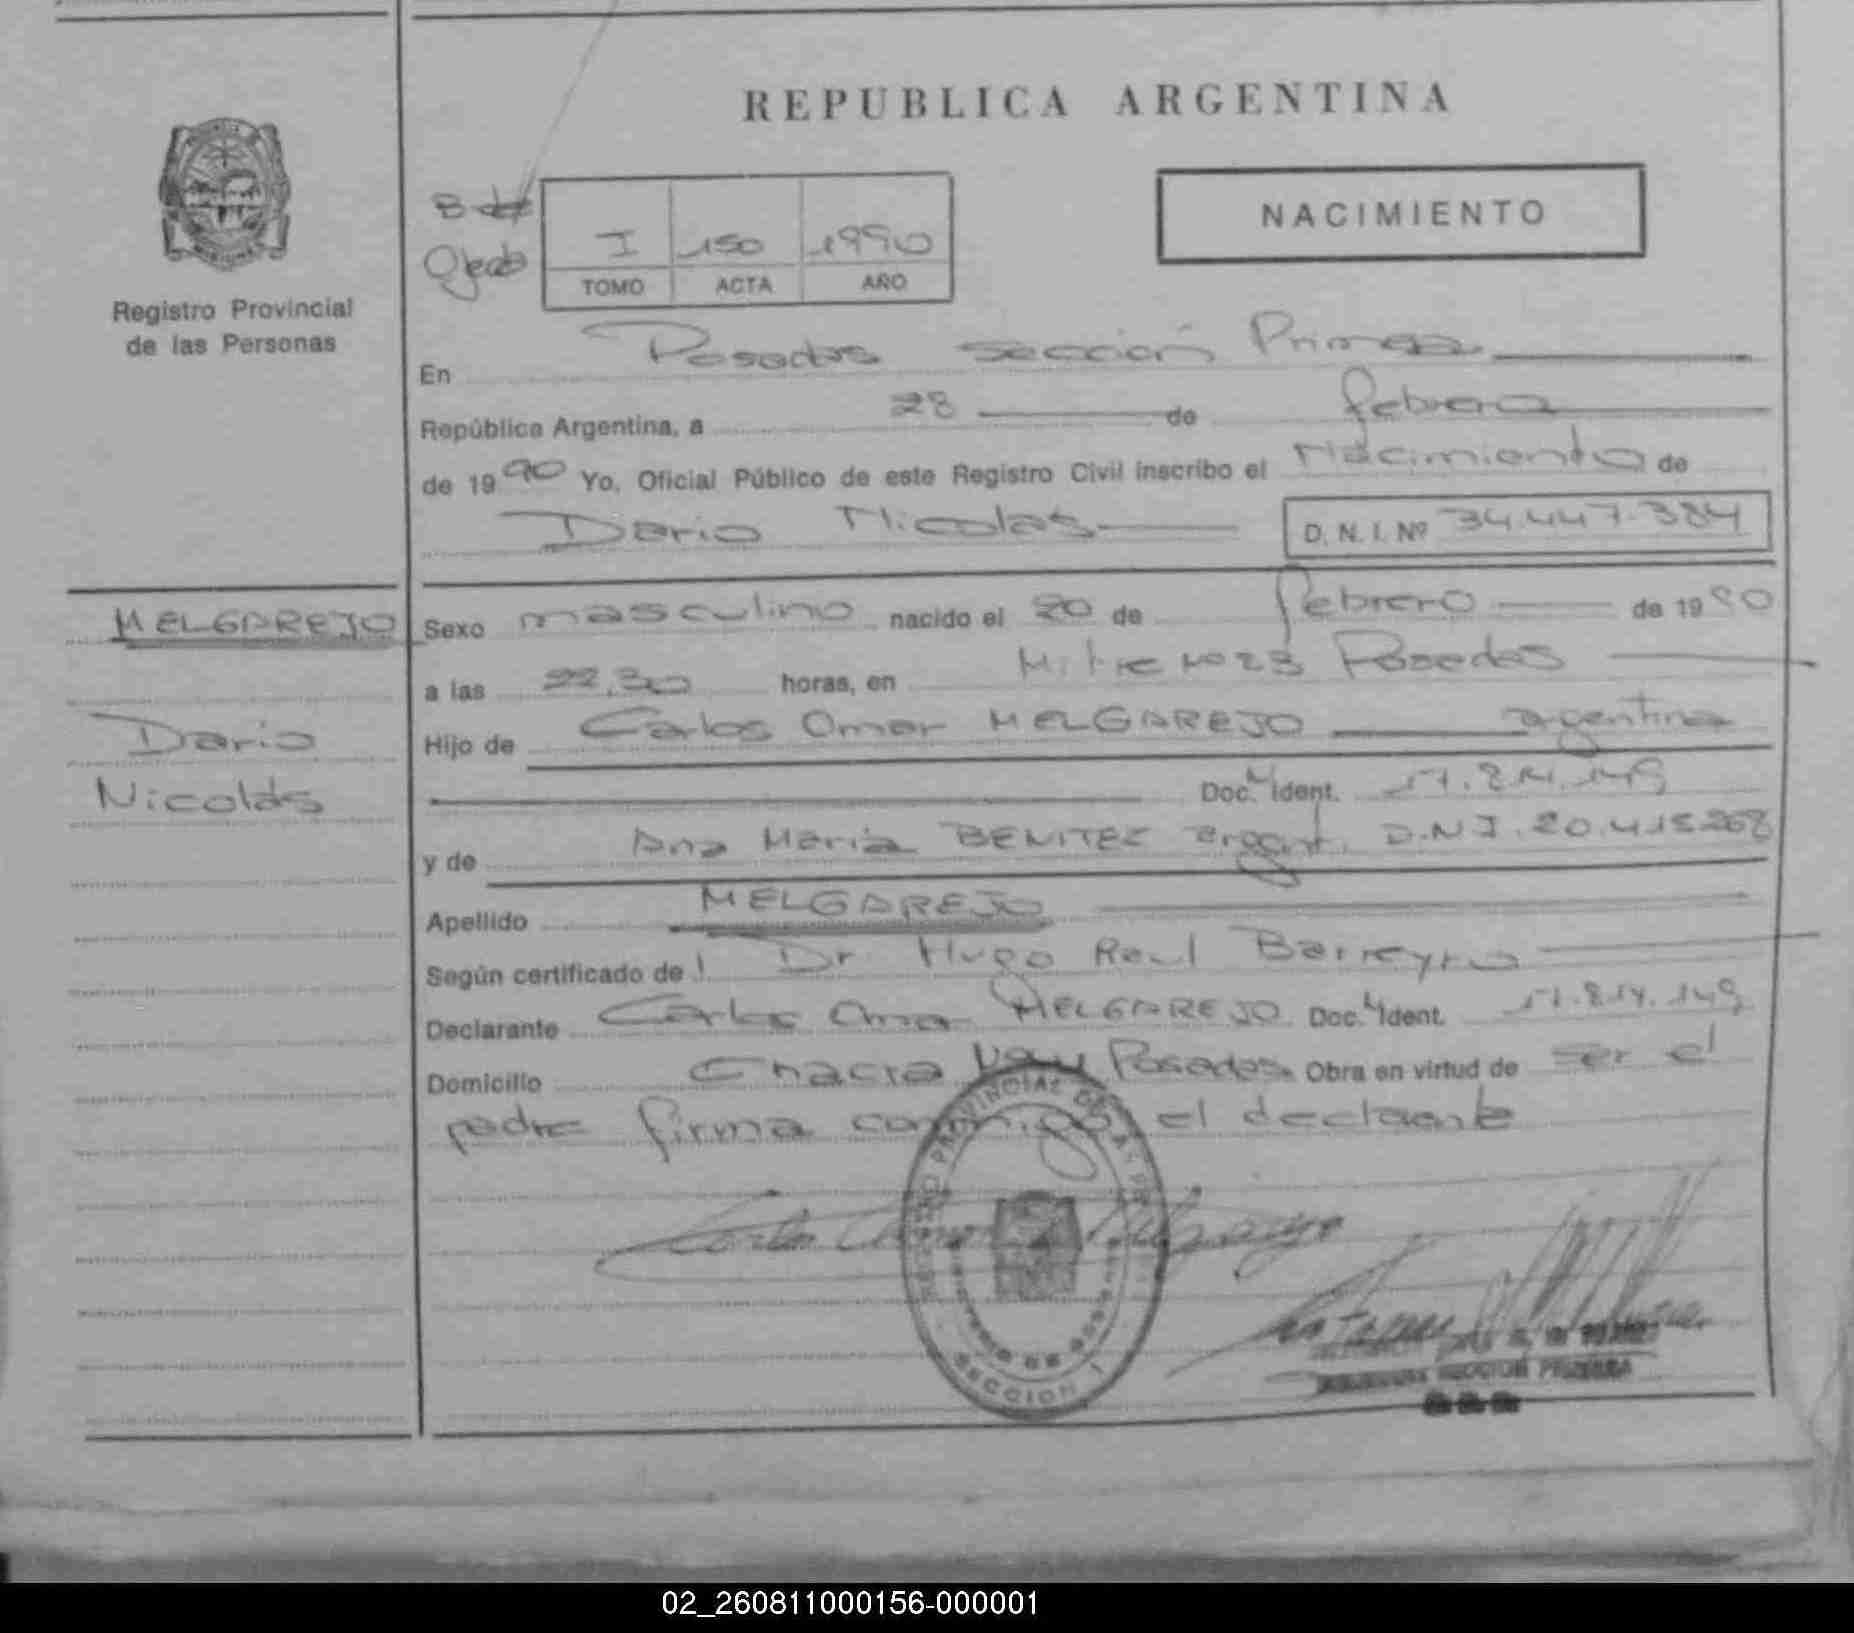 REPUBLICA ARGENTINA
NACIMIENTO
I 150 1990
TOMO ACTA AÑO
Registro Provincial
de las Personas
En Posadas sección Primera
República Argentina, a 28 de febrero
de 1990 Yo, Oficial Público de este Registro Civil inscribo el Nacimiento de
Dario Nicolas D. N. I. Nº 34.447.384
MELGAREJO
Dario
Nicolás
Sexo masculino nacido el 20 de febrero de 1990
a las 22,30 horas, en Mitre Nº 23 Posadas
Hijo de Carlos Omar MELGAREJO argentina
Doc. Ident. 17.814.149
y de Ana Maria BENITEZ argent. D.N.I. 20.415.268
Apellido MELGAREJO
Según certificado de Dr. Hugo Raul Barreyro
Declarante Carlos Omar MELGAREJO Doc. Ident. 17.814.149
Domicilio Chacra Posadas Obra en virtud de ser el
padre firma conmigo el declarante
REGISTRO PROVINCIAL DE LAS
SECCION 1
SECCION PRIMERA
02_260811000156-000001